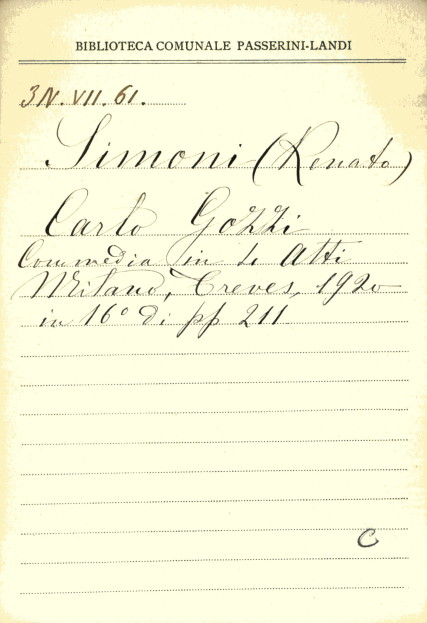 BIBLIOTECA COMUNALE PASSERINI-LANDI
3N.VII.61.
Simoni (Renato)
Carlo Gozzi
Commedia in 4 Atti
Milano, Treves, 1920
in 16° di pp 211
C